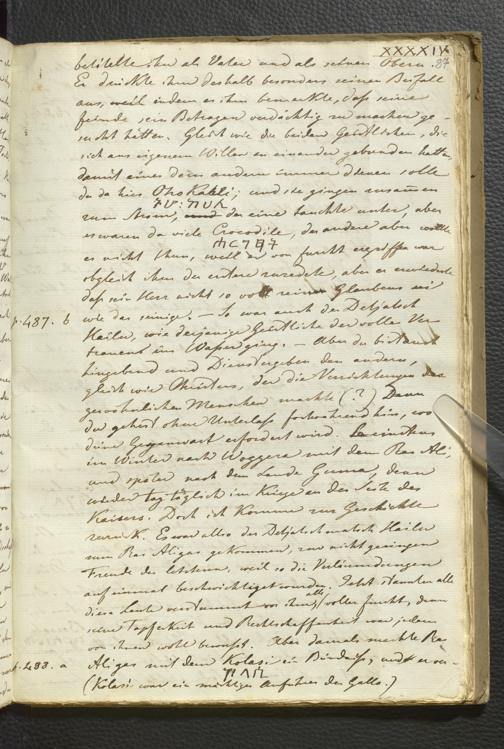 XXXXIV
87
betitelte ihn als Vater und als seinen Obern.
Er drückte ihm deshalb besonders seinen Beifall
aus, weil indem er ihm bemerkte, dass seine
feinde sein Betragen verdächtig zu machen ge-
sucht hätten. Gleich wie die beiden Geistlichen, die
sich aus eigenem Willen an einander gebunden hatten,
damit einer dem andern immer dienen solle
da da hies Oho Kaleli; und sie gingen zusammen
zum Strom, der eine tauchte unter, aber
es waren da viele Crocodile, der andere aber wollte
es nicht thun, weil er von furcht ergriffen war
obgleich ihm der erstere zuredete, aber er erwiederte
dass sein Herr nicht so voll reinen Glaubens sei
p. 487. b wie der seinige. — So war auch der Dedjatsch
Hailu, wie derjenige Geistliche der voller Ver-
trauens ins Wasser ging. — Aber du bist
hingebend und Dienstergeben den andern,
gleich wie Ministers, der die Verrichtungen der
gewöhnlichen Menschen machte (?) Denn
du gehest ohne Unterlass fortwährend hin, wo
deine Gegenwart erfordert wird.
im Winter nach Woggera mit dem Ras Ali,
und später nach dem Lande Gunna, dann
wieder tagtäglich im Kriege an der Seite des
Kaisers. Doch ich komme zur Geschichte
zurück. Es war also der Dedjatsch Hailu
zum Ras Aligas gekommen, zur nicht geringen
Freude des letztern, weil so die Verläumdungen
auf einmal beschwichtiget wurden. Jetzt standen alle
diese Leute verstummt vor ihm, alle voller furcht, denn
seine Tapferkeit und Rechtschaffenheit war jedem
von ihnen wohl bewusst. Aber damals machte Ras
p. 488. a Aligas mit dem Kolasi ein Bündniss; und
(Kolasi war ein mächtiger Anführer der Galla.)